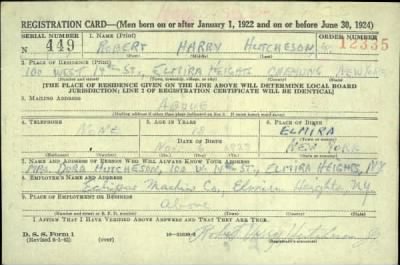 REGISTRATION CARD—(Men born on or after January 1, 1922 and on or before June 30, 1924)
SERIAL NUMBER 1. NAME (Print) ORDER NUMBER
449 ROBERT HARRY HUTCHESON, Jr. 12335
2. PLACE OF RESIDENCE (Print)
100 WEST ST., ELMIRA HEIGHTS CHEMUNG NEW YORK
(Number and street) (Town, township, village, or city) (County) (State)
[THE PLACE OF RESIDENCE GIVEN ON THE LINE ABOVE WILL DETERMINE LOCAL BOARD
JURISDICTION; LINE 2 OF REGISTRATION CERTIFICATE WILL BE IDENTICAL]
3. MAILING ADDRESS
ABOVE
[Mailing address if other than place indicated on line 2. If same insert word same]
4. TELEPHONE 5. AGE IN YEARS 6. PLACE OF BIRTH
NONE 18 ELMIRA
DATE OF BIRTH (Town or county)
NOV. 6 1923 NEW YORK
(Exchange) (Number) (Mo.) (Day) (Yr.) (State or country)
7. NAME AND ADDRESS OF PERSON WHO WILL ALWAYS KNOW YOUR ADDRESS
MRS. DORA HUTCHESON, 100 W. ST., ELMIRA HEIGHTS, N.Y.
8. EMPLOYER'S NAME AND ADDRESS
Eclipse Machine Co., Elmira Heights, N.Y.
9. PLACE OF EMPLOYMENT OR BUSINESS
Above
(Number and street or R. F. D. number) (Town) (County) (State)
I AFFIRM THAT I HAVE VERIFIED ABOVE ANSWERS AND THAT THEY ARE TRUE.
D. S. S. Form 1 (over)
(Revised 6-1-42) Robert Harry Hutcheson Jr.
(Registrant's signature)